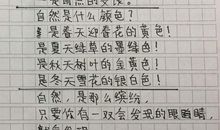 自然是什么颜色？
是春天迎春花的黄色！
是夏天绿草的墨绿色！
是秋天树叶的金黄色！
是冬天雪花的银白色！
自然，是那么缤纷，
只要你有一双会发现的眼睛，